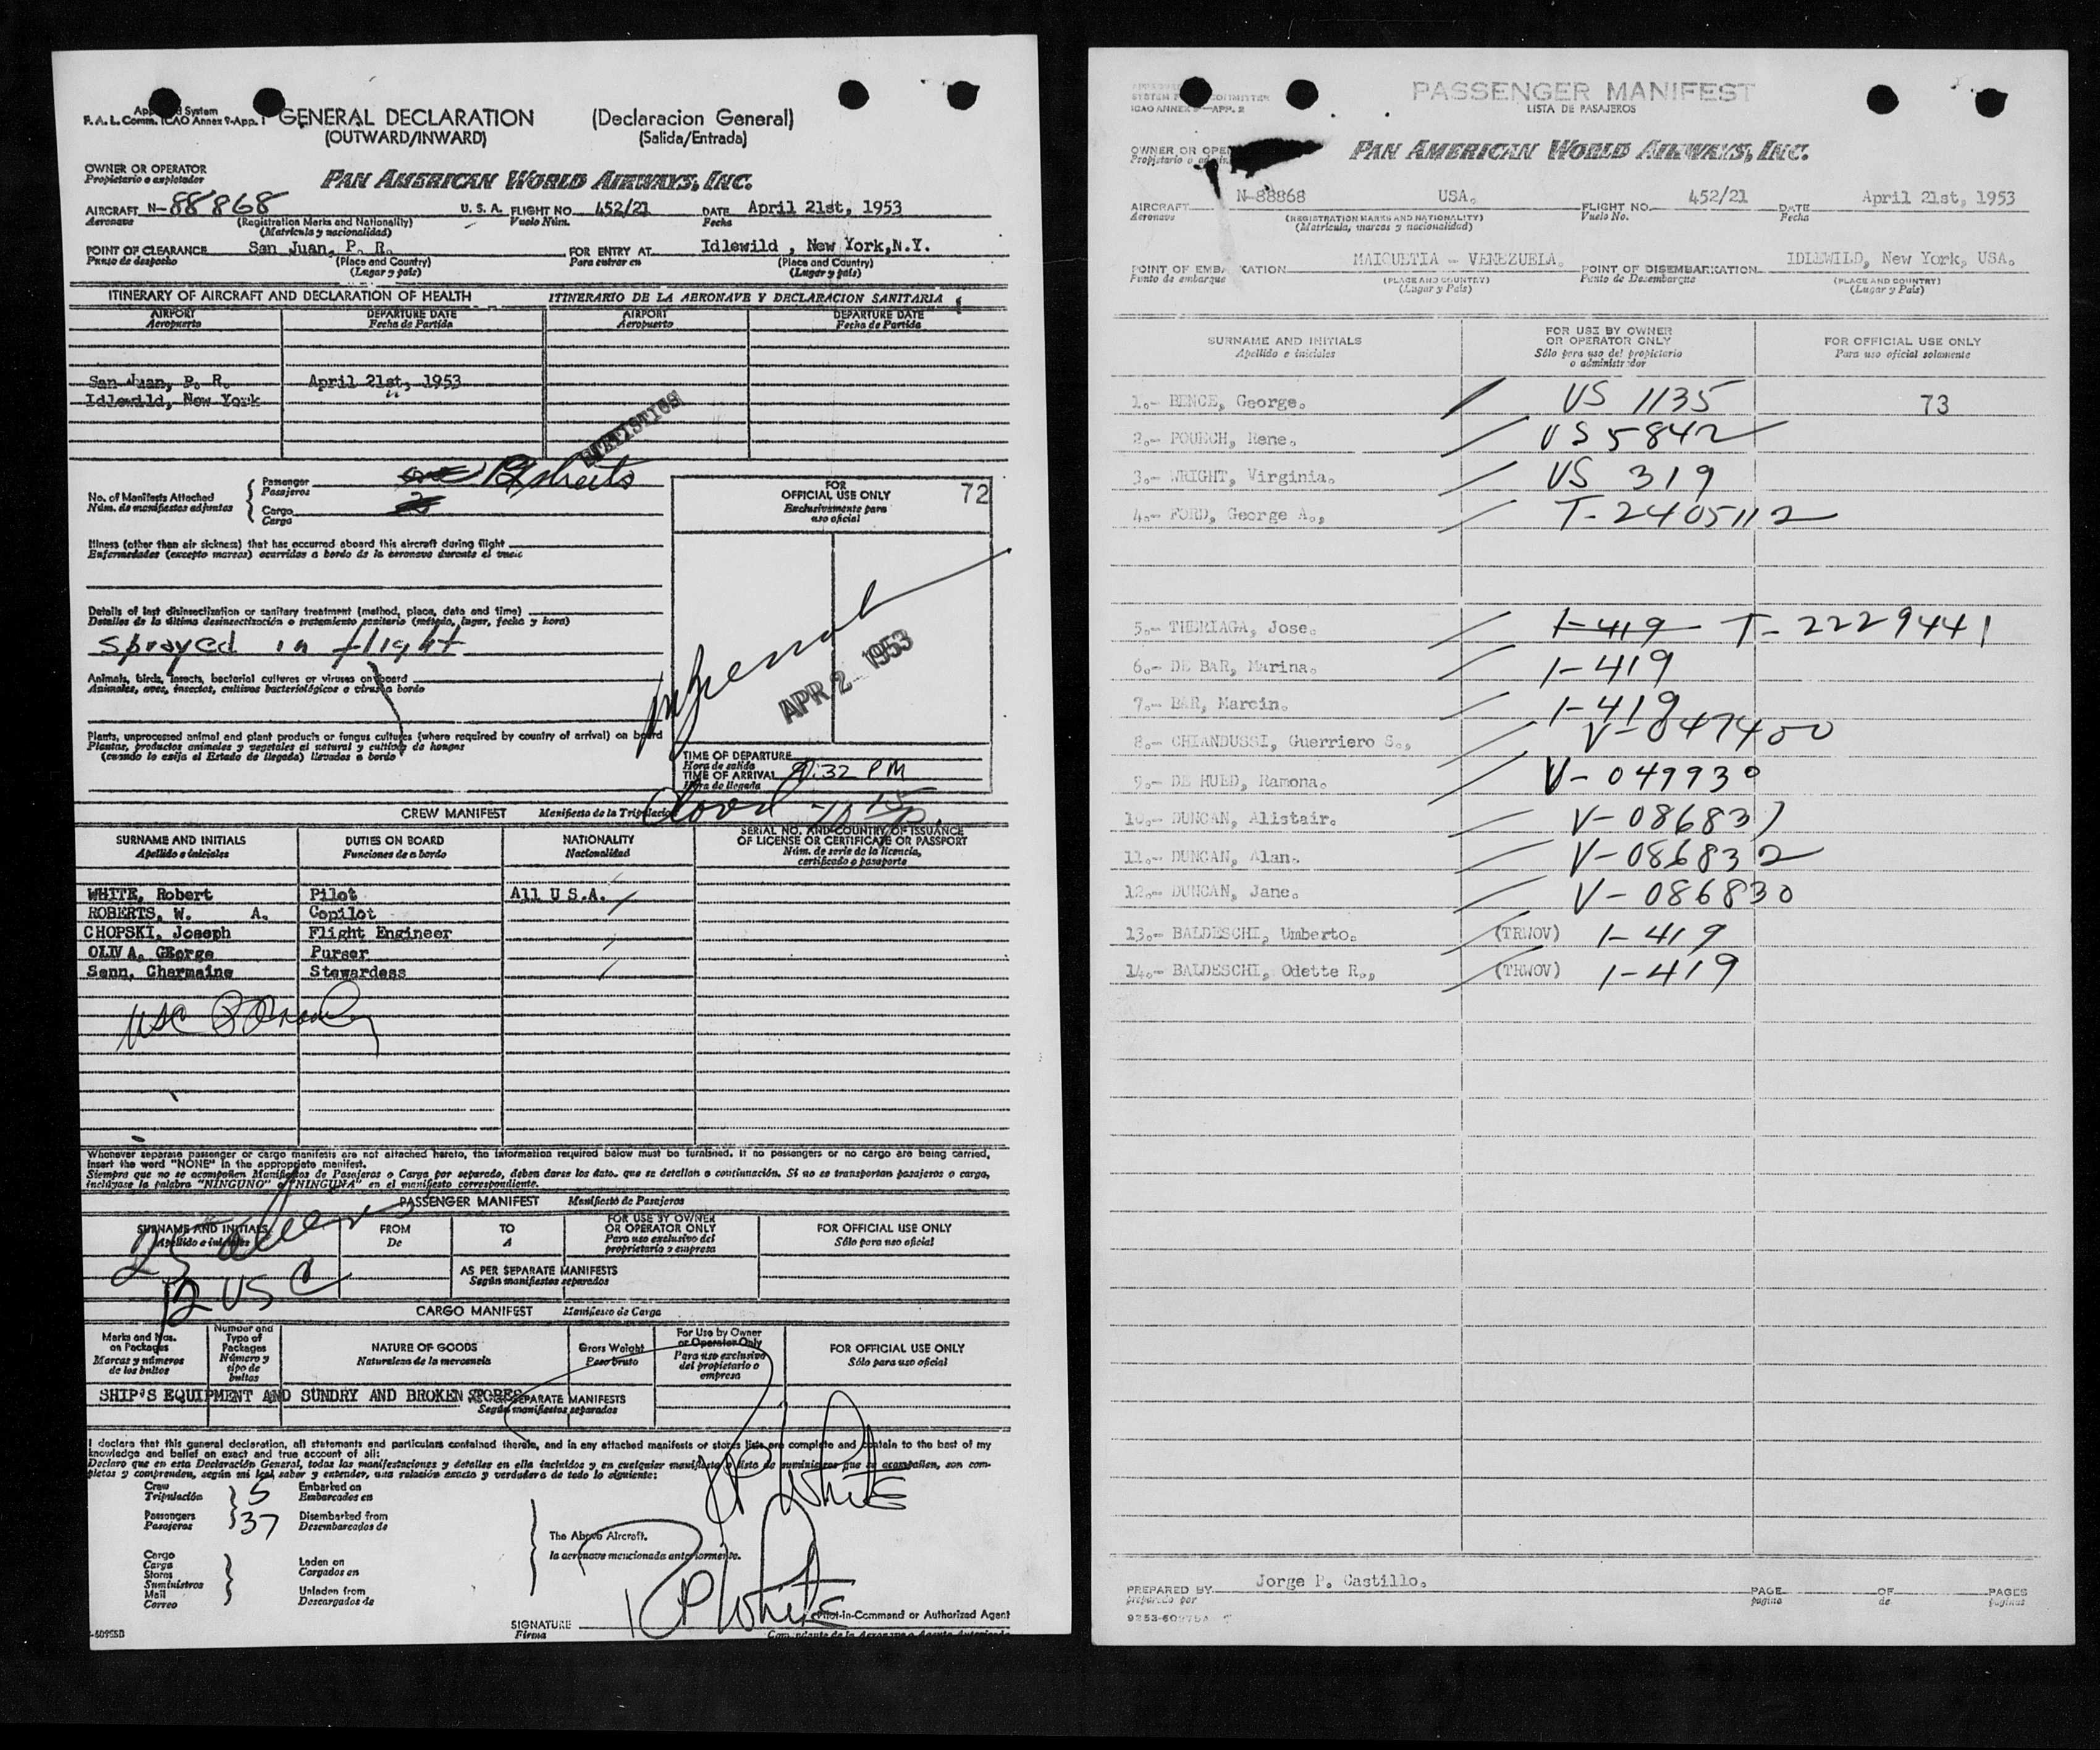 GENERAL DECLARATION (Declaracion General)
(OUTWARD/INWARD) (Salida/Entrada)
F. A. L. Comm. ICAO Annex 9-App. 1
OWNER OR OPERATOR
Propietario o explotador
PAN AMERICAN WORLD AIRWAYS, INC.
AIRCRAFT N-88868 U. S. A. FLIGHT NO. 452/21 DATE April 21st, 1953
Aeronave (Registration Marks and Nationality) Vuelo Núm. Fecha
(Matricula y nacionalidad)
POINT OF CLEARANCE San Juan, P. R. FOR ENTRY AT Idlewild , New York,N.Y.
Punto de despacho (Place and Country) Para entrar en (Place and Country)
(Lugar y país) (Lugar y país)
ITINERARY OF AIRCRAFT AND DECLARATION OF HEALTH ITINERARIO DE LA AERONAVE Y DECLARACION SANITARIA
AIRPORT DEPARTURE DATE AIRPORT DEPARTURE DATE
Aeropuerto Fecha de Partida Aeropuerto Fecha de Partida
San Juan, P. R. April 21st, 1953
Idlewild, New York "
STATISTICS
No. of Manifests Attached
Núm. de manifiestos adjuntos
Passenger
Pasajeros
Cargo
Carga
sheets
FOR
OFFICIAL USE ONLY 72
Exclusivamente para
uso oficial
Illness (other than air sickness) that has occurred aboard this aircraft during flight
Enfermedades (excepto mareos) ocurridas a bordo de la aeronave durante el vuelo
Details of last disinsectization or sanitary treatment (method, place, date and time)
Detalles de la última desinsectización o tratamiento sanitario (método, lugar, fecha y hora)
Sprayed in flight
APR 2 1953
Animals, birds, insects, bacterial cultures or viruses on board
Animales, aves, insectos, cultivos bacteriológicos o virus a bordo
Plants, unprocessed animal and plant products or fungus cultures (where required by country of arrival) on board
Plantas, productos animales y vegetales al natural y cultivos de hongos
(cuando lo exija el Estado de llegada) llevados a bordo
TIME OF DEPARTURE
Hora de salida
TIME OF ARRIVAL 9:32 PM
Hora de llegada
CREW MANIFEST Manifiesto de la Tripulación
SURNAME AND INITIALS DUTIES ON BOARD NATIONALITY SERIAL NO. AND COUNTRY OF ISSUANCE
OF LICENSE OR CERTIFICATE OR PASSPORT
Apellido e iniciales Funciones de a bordo Nacionalidad Núm. de serie de la licencia,
certificado o pasaporte
WHITE, Robert Pilot All U S.A.
ROBERTS, W. A. Copilot
CHOPSKI, Joseph Flight Engineer
OLIV A, GEorge Purser
Senn, Charmaine Stewardess
Whenever separate passenger or cargo manifests are not attached hereto, the information required below must be furnished. If no passengers or no cargo are being carried,
insert the word "NONE" in the appropriate manifest.
Siempre que no se acompañen Manifiestos de Pasajeros o Carga por separado, deben darse los datos que se detallan a continuación. Si no se transportan pasajeros o carga,
inclúyase la palabra "NINGUNO" o "NINGUNA" en el manifiesto correspondiente.
PASSENGER MANIFEST Manifiesto de Pasajeros
SURNAME AND INITIALS FROM TO FOR USE BY OWNER OR OPERATOR ONLY FOR OFFICIAL USE ONLY
Apellido e iniciales De A Para uso exclusivo del propietario o empresa Sólo para uso oficial
25 aliens
12 USC
AS PER SEPARATE MANIFESTS
Según manifiestos separados
CARGO MANIFEST Manifiesto de Carga
Marks and Nos. on Packages Number and Type of Packages NATURE OF GOODS Gross Weight For Use by Owner or Operator Only FOR OFFICIAL USE ONLY
Marcas y números de los bultos Número y tipo de bultos Naturaleza de la mercancía Peso bruto Para uso exclusivo del propietario o empresa Sólo para uso oficial
SHIP'S EQUIPMENT AND SUNDRY AND BROKEN STORES SEPARATE MANIFESTS
Según manifiestos separados
I declare that this general declaration, all statements and particulars contained therein, and in any attached manifests or stores lists are complete and contain to the best of my
knowledge and belief an exact and true account of all:
Declaro que en esta Declaración General, todas las manifestaciones y detalles en ella incluidos y en cualquier manifiesto o lista de suministros que se acompañen, son com-
pletos y comprenden, según mi leal saber y entender, una relación exacta y verdadera de todo lo siguiente:
Crew 5 Embarked on
Tripulación Embarcados en
Passengers 37 Disembarked from
Pasajeros Desembarcados de
The Above Aircraft.
la aeronave mencionada anteriormente.
Cargo
Carga
Stores
Suministros
Mail
Correo
Laden on
Cargados en
Unladen from
Descargados de
RP White
RP White
SIGNATURE Pilot-in-Command or Authorized Agent
Firma Comandante de la Aeronave o Agente Autorizado
PASSENGER MANIFEST
LISTA DE PASAJEROS
ICAO ANNEX 9—APP. 2
OWNER OR OPE
PAN AMERICAN WORLD AIRWAYS, INC.
AIRCRAFT N-88868 USA. FLIGHT NO. 452/21 DATE April 21st, 1953
Aeronave (REGISTRATION MARKS AND NATIONALITY) Vuelo No. Fecha
(Matrícula, marcas y nacionalidad)
POINT OF EMBARKATION MAIQUETIA - VENEZUELA. POINT OF DISEMBARKATION IDLEWILD, New York, USA.
Punto de embarque (PLACE AND COUNTRY) Punto de Desembarque (PLACE AND COUNTRY)
(Lugar y País) (Lugar y País)
SURNAME AND INITIALS FOR USE BY OWNER OR OPERATOR ONLY FOR OFFICIAL USE ONLY
Apellido e iniciales Sólo para uso del propietario o administrador Para uso oficial solamente
1.- BENCE, George. US 1135 73
2.- POUECH, Rene. US 5842
3.- WRIGHT, Virginia. US 319
4.- FORD, George A., T-2405112
5.- THERIAGA, Jose. 1-419 T-2229441
6.- DE BAR, Marina. 1-419
7.- BAR, Marcin. 1-419
8.- CHIANDUSSI, Guerriero S., V-047400
9.- DE HUED, Ramona. V-049930
10.- DUNCAN, Alistair. V-086831
11.- DUNCAN, Alan. V-086832
12.- DUNCAN, Jane. V-086830
13.- BALDESCHI, Umberto. (TRWOV) 1-419
14.- BALDESCHI, Odette R., (TRWOV) 1-419
PREPARED BY Jorge P. Castillo. PAGE OF PAGES
preparado por página de páginas